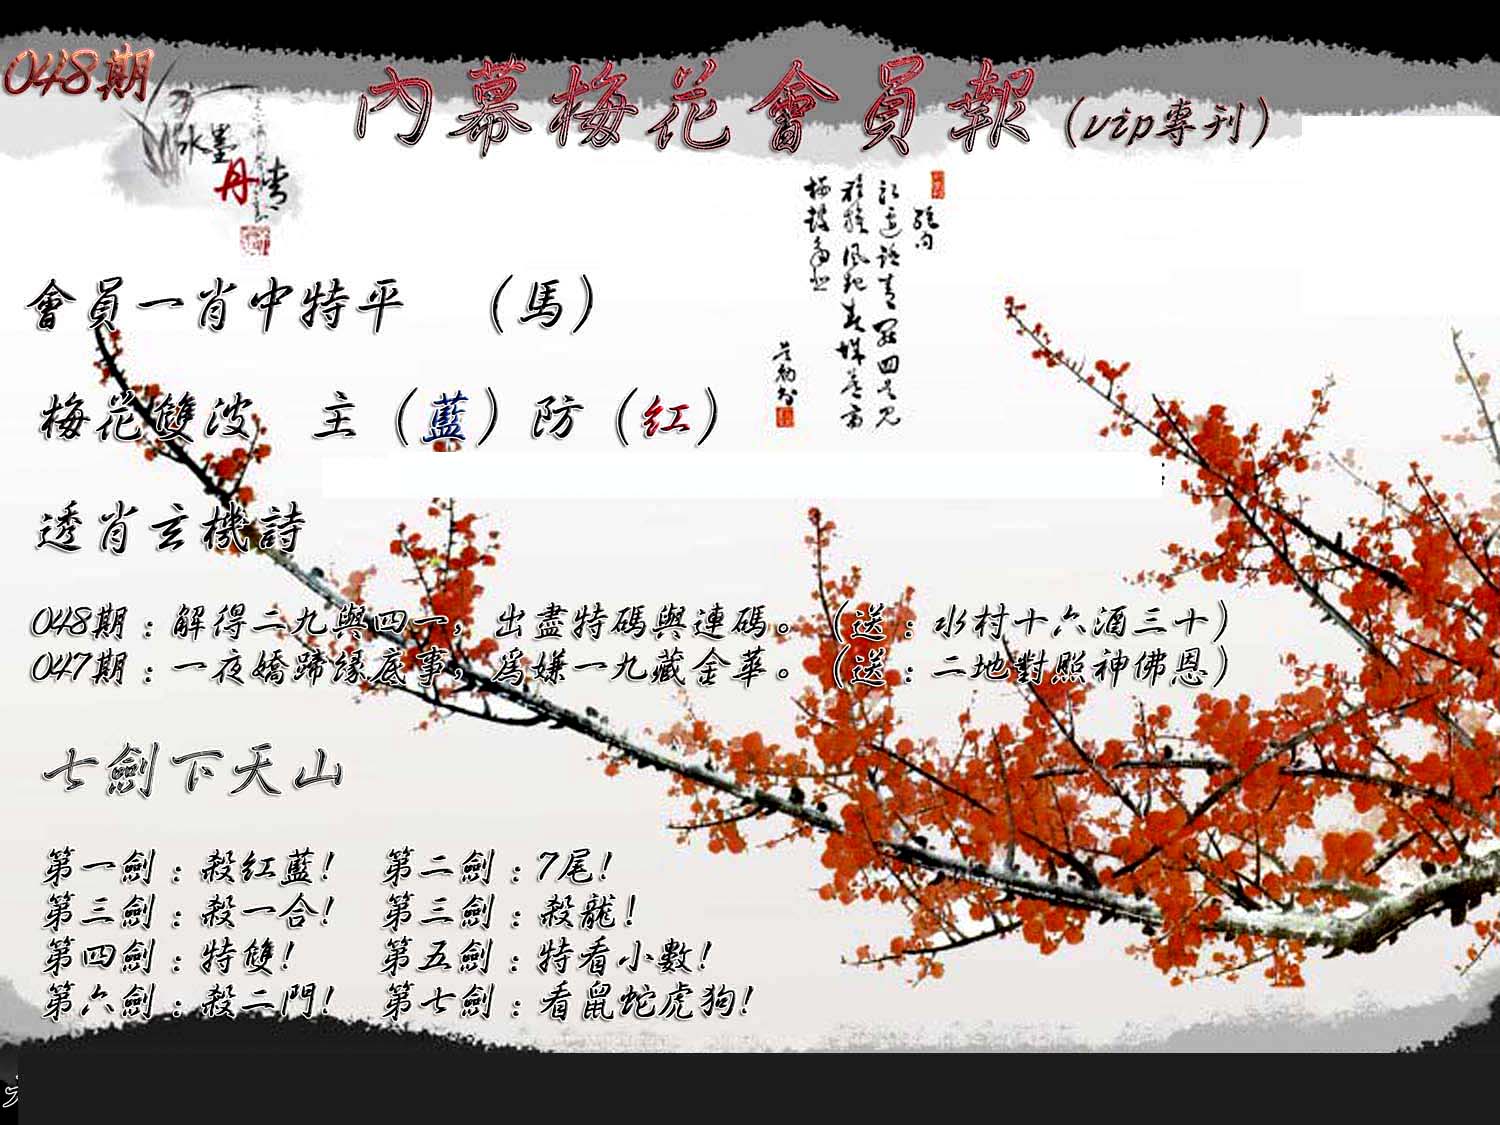 048期
內幕梅花會員報(vip專刊)
水墨
丹青
會員一肖中特平 (馬)
梅花雙波 主(藍)防(紅)
透肖玄機詩
048期:解得二九與四一,出盡特碼與連碼。(送:水村十六酒三十)
047期:一夜嬌蹄緣底事,爲嫌一九藏金華。(送:二地對照神佛恩)
七劍下天山
第一劍:殺紅藍! 第二劍:7尾!
第三劍:殺一合! 第三劍:殺龍!
第四劍:特雙! 第五劍:特看小數!
第六劍:殺二門! 第七劍:看鼠蛇虎狗!